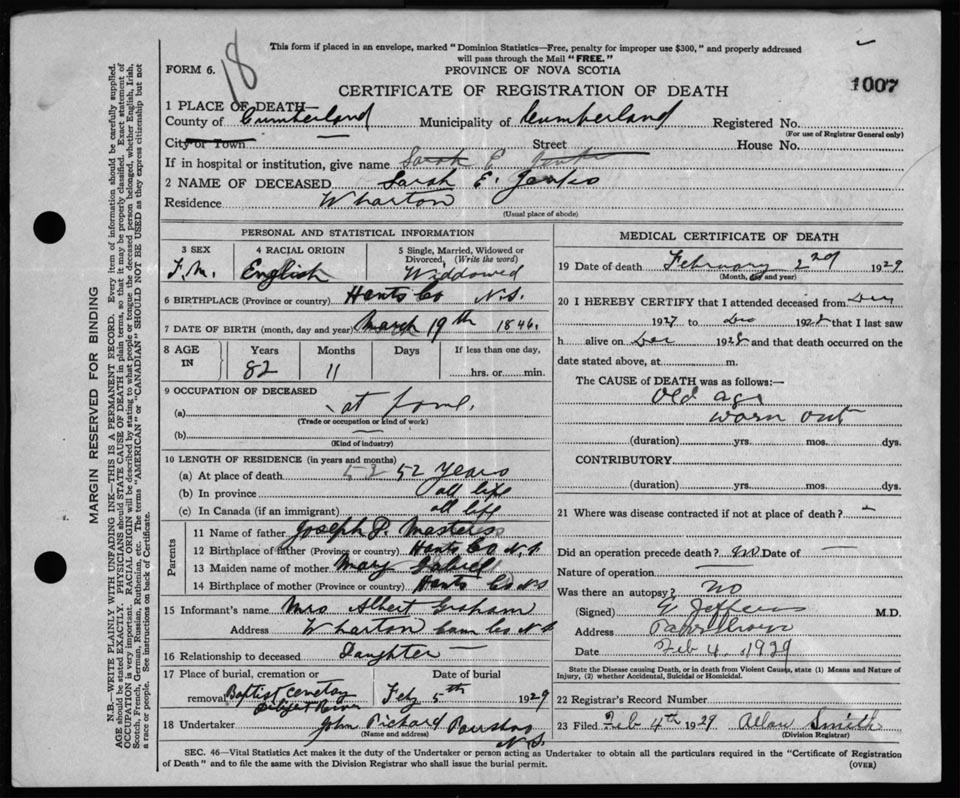 18
This form if placed in an envelope, marked "Dominion Statistics—Free, penalty for improper use $300," and properly addressed
will pass through the Mail "FREE."
FORM 6.
PROVINCE OF NOVA SCOTIA
CERTIFICATE OF REGISTRATION OF DEATH
1007
1 PLACE OF DEATH—
County of Cumberland Municipality of Cumberland Registered No.
(For use of Registrar General only)
City or Town Street House No.
If in hospital or institution, give name Sarah E
2 NAME OF DECEASED Sarah E. Jenks
Residence Wharton
(Usual place of abode)
PERSONAL AND STATISTICAL INFORMATION
3 SEX 4 RACIAL ORIGIN 5 Single, Married, Widowed or Divorced, (Write the word)
F.M. English Widdowed
6 BIRTHPLACE (Province or country) Hants Co N.S.
7 DATE OF BIRTH (month, day and year) March 19th 1846.
8 AGE IN Years Months Days If less than one day,
82 11 hrs. or min.
9 OCCUPATION OF DECEASED
(a) at home.
(Trade or occupation or kind of work)
(b) —
(Kind of industry)
10 LENGTH OF RESIDENCE (in years and months)
(a) At place of death 52 52 years
(b) In province all life
(c) In Canada (if an immigrant) all life
Parents
11 Name of father Joseph P. Masters
12 Birthplace of father (Province or country) Hants Co N.S
13 Maiden name of mother Mary Gabriel
14 Birthplace of mother (Province or country) Hants Co N S
15 Informant's name Mrs Albert Graham
Address Wharton Cum Co N.S
16 Relationship to deceased Daughter —
17 Place of burial, cremation or Date of burial
removal Baptist Cemetary Feb 5th 1929
Diligent River
18 Undertaker John Pickard Parrsboro
(Name and address) N.S.
MEDICAL CERTIFICATE OF DEATH
19 Date of death February 2nd 1929
(Month, day and year)
20 I HEREBY CERTIFY that I attended deceased from Dec
1927 to Dec 1928 that I last saw
h alive on Dec 1928 and that death occurred on the
date stated above, at m.
The CAUSE of DEATH was as follows:—
Old age
worn out
(duration) yrs. mos. dys.
CONTRIBUTORY
(duration) yrs. mos. dys.
21 Where was disease contracted if not at place of death? —
Did an operation precede death? no Date of —
Nature of operation —
Was there an autopsy? NO
(Signed) Jeffers M.D.
Address Parrsboro
Date Feb 4. 1929
State the Disease causing Death, or in death from Violent Causes, state (1) Means and Nature of
Injury, (2) whether Accidental, Suicidal or Homicidal.
22 Registrar's Record Number
23 Filed Feb 4th 1929 Allan Smith
(Division Registrar)
SEC. 46—Vital Statistics Act makes it the duty of the Undertaker or person acting as Undertaker to obtain all the particulars required in the "Certificate of Registration
of Death" and to file the same with the Division Registrar who shall issue the burial permit. (OVER)
MARGIN RESERVED FOR BINDING
N.B.—WRITE PLAINLY WITH UNFADING INK—THIS IS A PERMANENT RECORD. Every item of information should be carefully supplied.
AGE should be stated EXACTLY. PHYSICIANS should STATE CAUSE OF DEATH in plain terms, so that it may be properly classified. Exact statement of
OCCUPATION is very important. RACIAL ORIGIN will be described by stating to what people or tongue the deceased person belonged, whether English, Irish,
Scotch, French, German, Russian, Ruthenian, etc. The terms "AMERICAN" or "CANADIAN" SHOULD NOT BE USED as they express citizenship but not
a race or people. See instructions on back of Certificate.